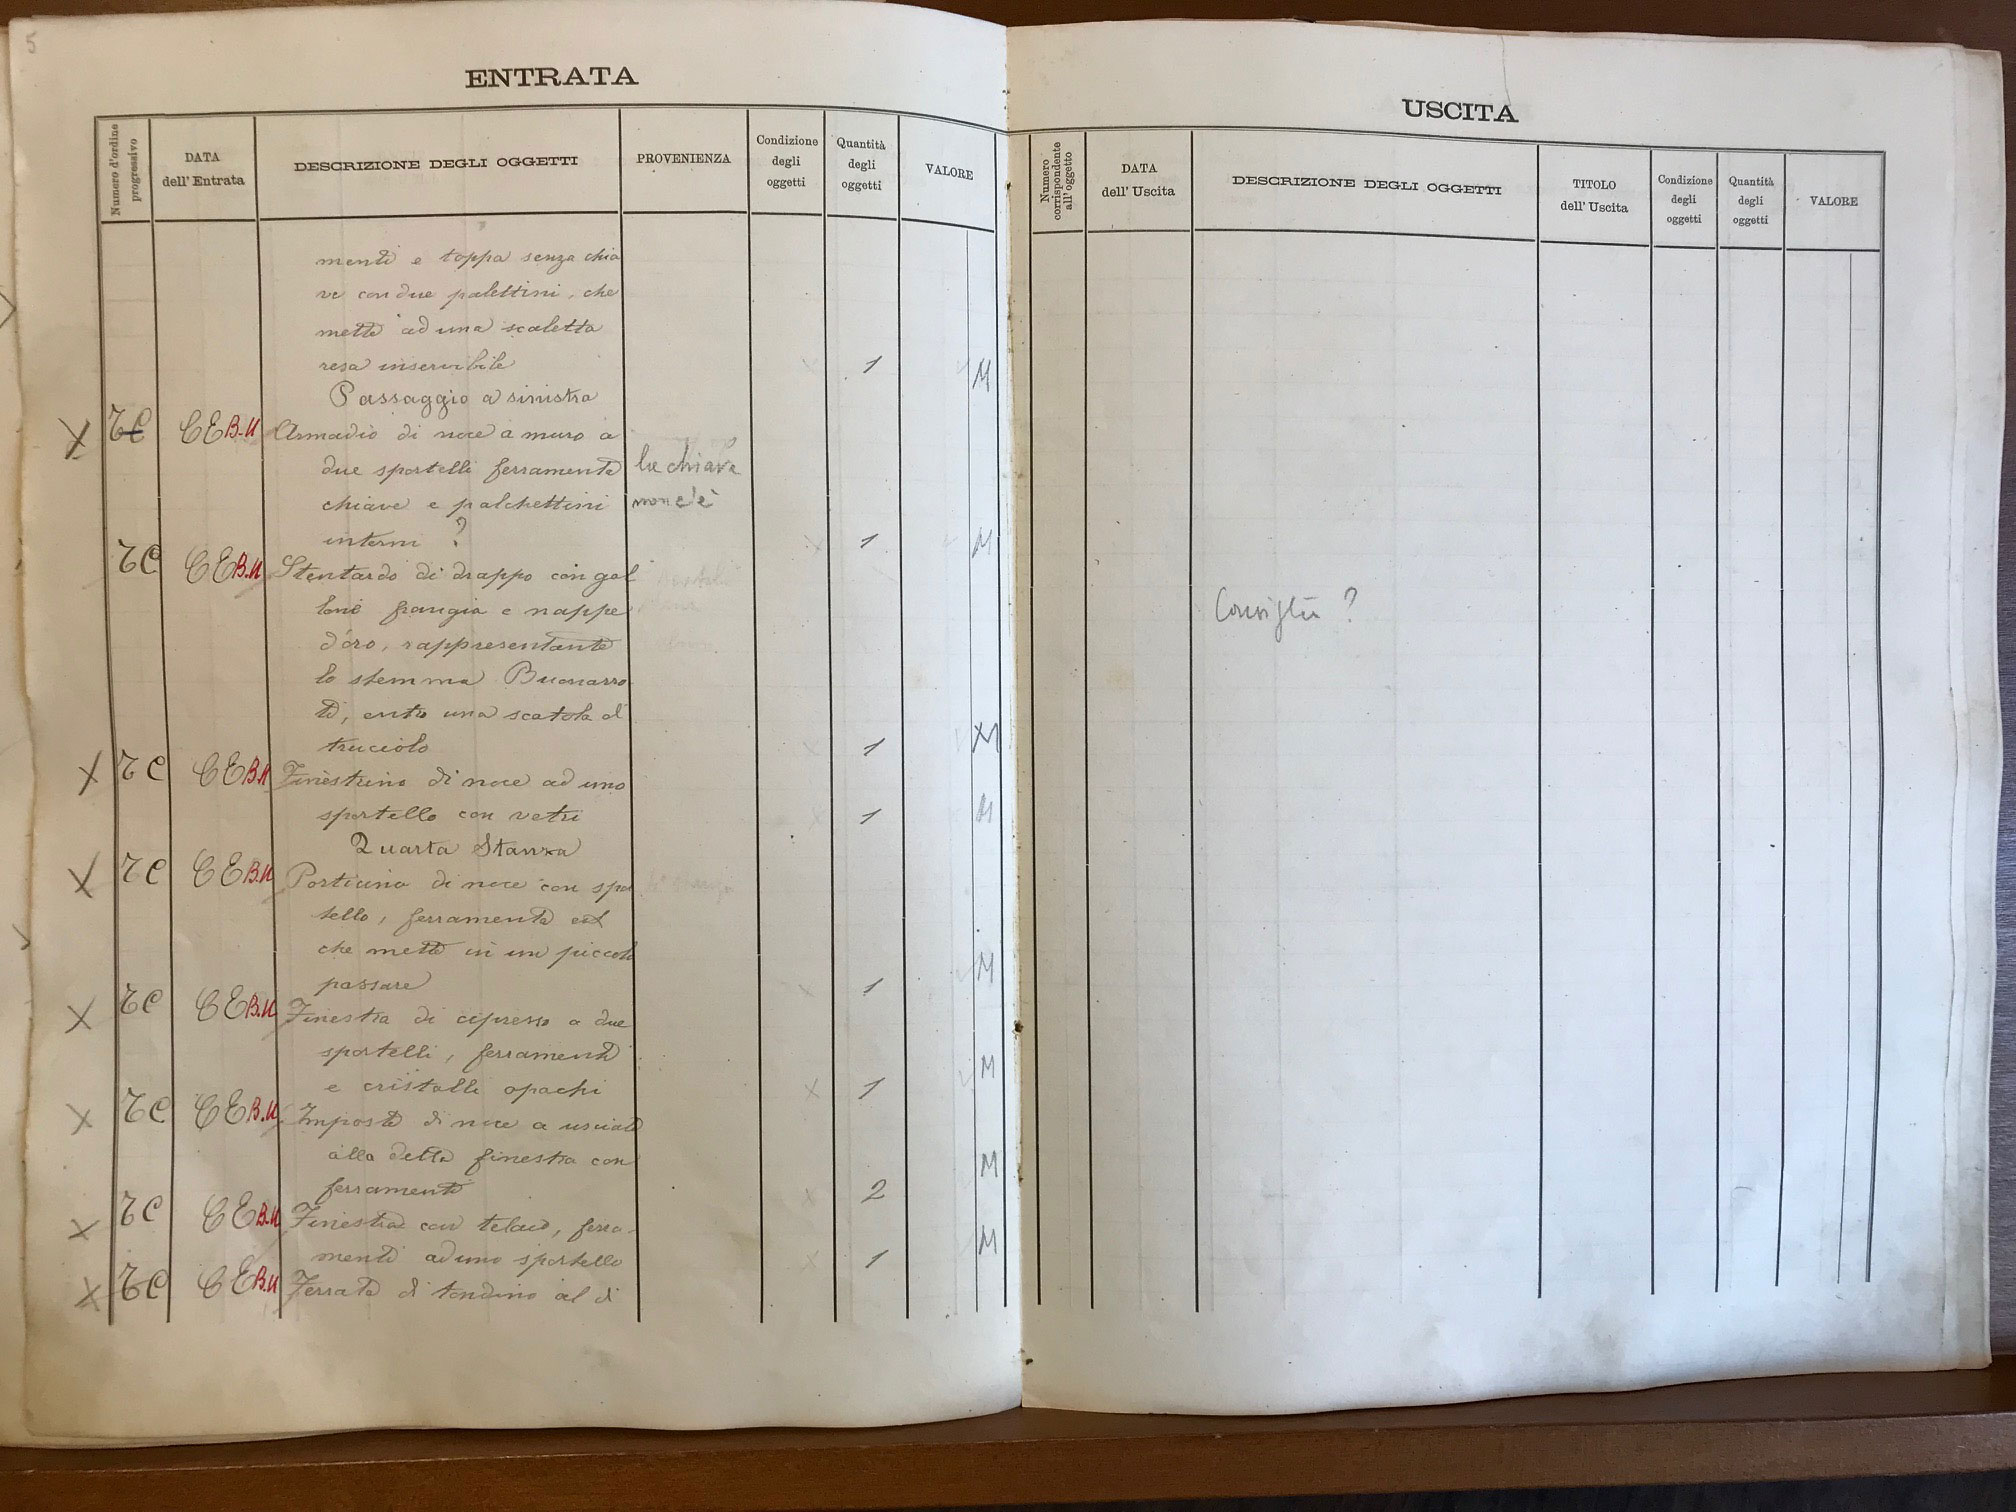 5
ENTRATA
Numero d'ordine progressivo
DATA dell' Entrata
DESCRIZIONE DEGLI OGGETTI
PROVENIENZA
Condizione degli oggetti
Quantità degli oggetti
VALORE
menti e toppa senza chia
ve con due palettini, che
mette ad una scaletta
resa inservibile 1 M
Passaggio a sinistra
X TC CE B.U Armadio di noce a muro a
due sportelli ferramenti la chiave
chiave e palchettini non c'è
interni ? 1 M
TC CE B.U Stentardo di drappo con gal
loni frangia e nappe
d'oro, rappresentante
lo stemma Buonarro
ti, entro una scatola di
truciolo 1 M
X TC CE B.U Finestrino di noce ad uno
sportello con vetri 1 M
Quarta Stanza
X TC CE B.U Porticina di noce con spor
tello, ferramenti
che mette in un piccolo
passare 1 M
X TC CE B.U Finestra di cipresso a due
sportelli, ferramenti
e cristalli opachi 1 M
X TC CE B.U Imposte di noce a usciale
alla detta finestra con
ferramenti 2 M
X TC CE B.U Finestra con telaio, ferra-
menti ad uno sportello 1 M
X TC CE B.U Ferrata di tondino al di
USCITA
Numero corrispondente all' oggetto
DATA dell' Uscita
DESCRIZIONE DEGLI OGGETTI
TITOLO dell' Uscita
Condizione degli oggetti
Quantità degli oggetti
VALORE